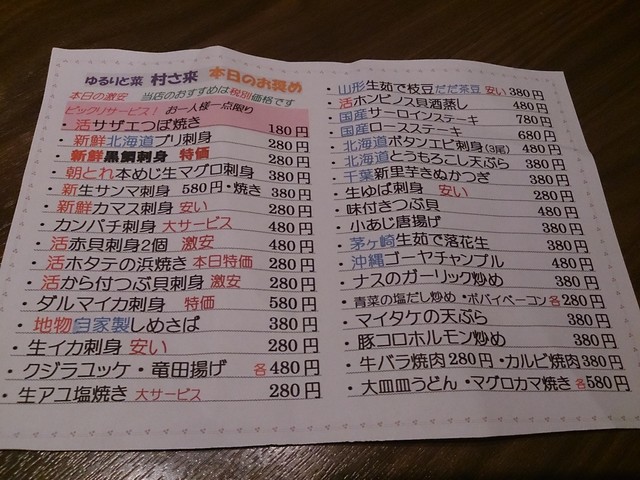 ゆるりと菜 村さ来 本日のお奨め
本日の激安 当店のおすすめは税別価格です
ビックリサービス! お一人様一点限り
・活サザエつぼ焼き 180円
・新鮮北海道ブリ刺身 280円
・新鮮黒鯛刺身 特価 280円
・朝とれ本めじ生マグロ刺身 380円
・新生サンマ刺身 580円・焼き 380円
・新鮮カマス刺身 安い 280円
・カンパチ刺身 大サービス 480円
・活赤貝刺身2個 激安 480円
・活ホタテの浜焼き 本日特価 280円
・活から付つぶ貝刺身 激安 280円
・ダルマイカ刺身 特価 580円
・地物自家製しめさば 380円
・生イカ刺身 安い 280円
・クジラユッケ・竜田揚げ 各480円
・生アユ塩焼き 大サービス 280円
・山形生茹で枝豆だだ茶豆 安い 380円
・活ホンビノス貝酒蒸し 480円
・国産サーロインステーキ 780円
・国産ロースステーキ 680円
・北海道ボタンエビ刺身(3尾) 480円
・北海道とうもろこし天ぷら 380円
・千葉新里芋きぬかつぎ 380円
・生ゆば刺身 安い 280円
・味付きつぶ貝 480円
・小あじ唐揚げ 380円
・茅ヶ崎生茹で落花生 380円
・沖縄ゴーヤチャンプル 480円
・ナスのガーリック炒め 380円
・青菜の塩だし炒め・ポパイベーコン各280円
・マイタケの天ぷら 380円
・豚コロホルモン炒め 380円
・牛バラ焼肉280円・カルビ焼肉380円
・大皿皿うどん・マグロカマ焼き各580円